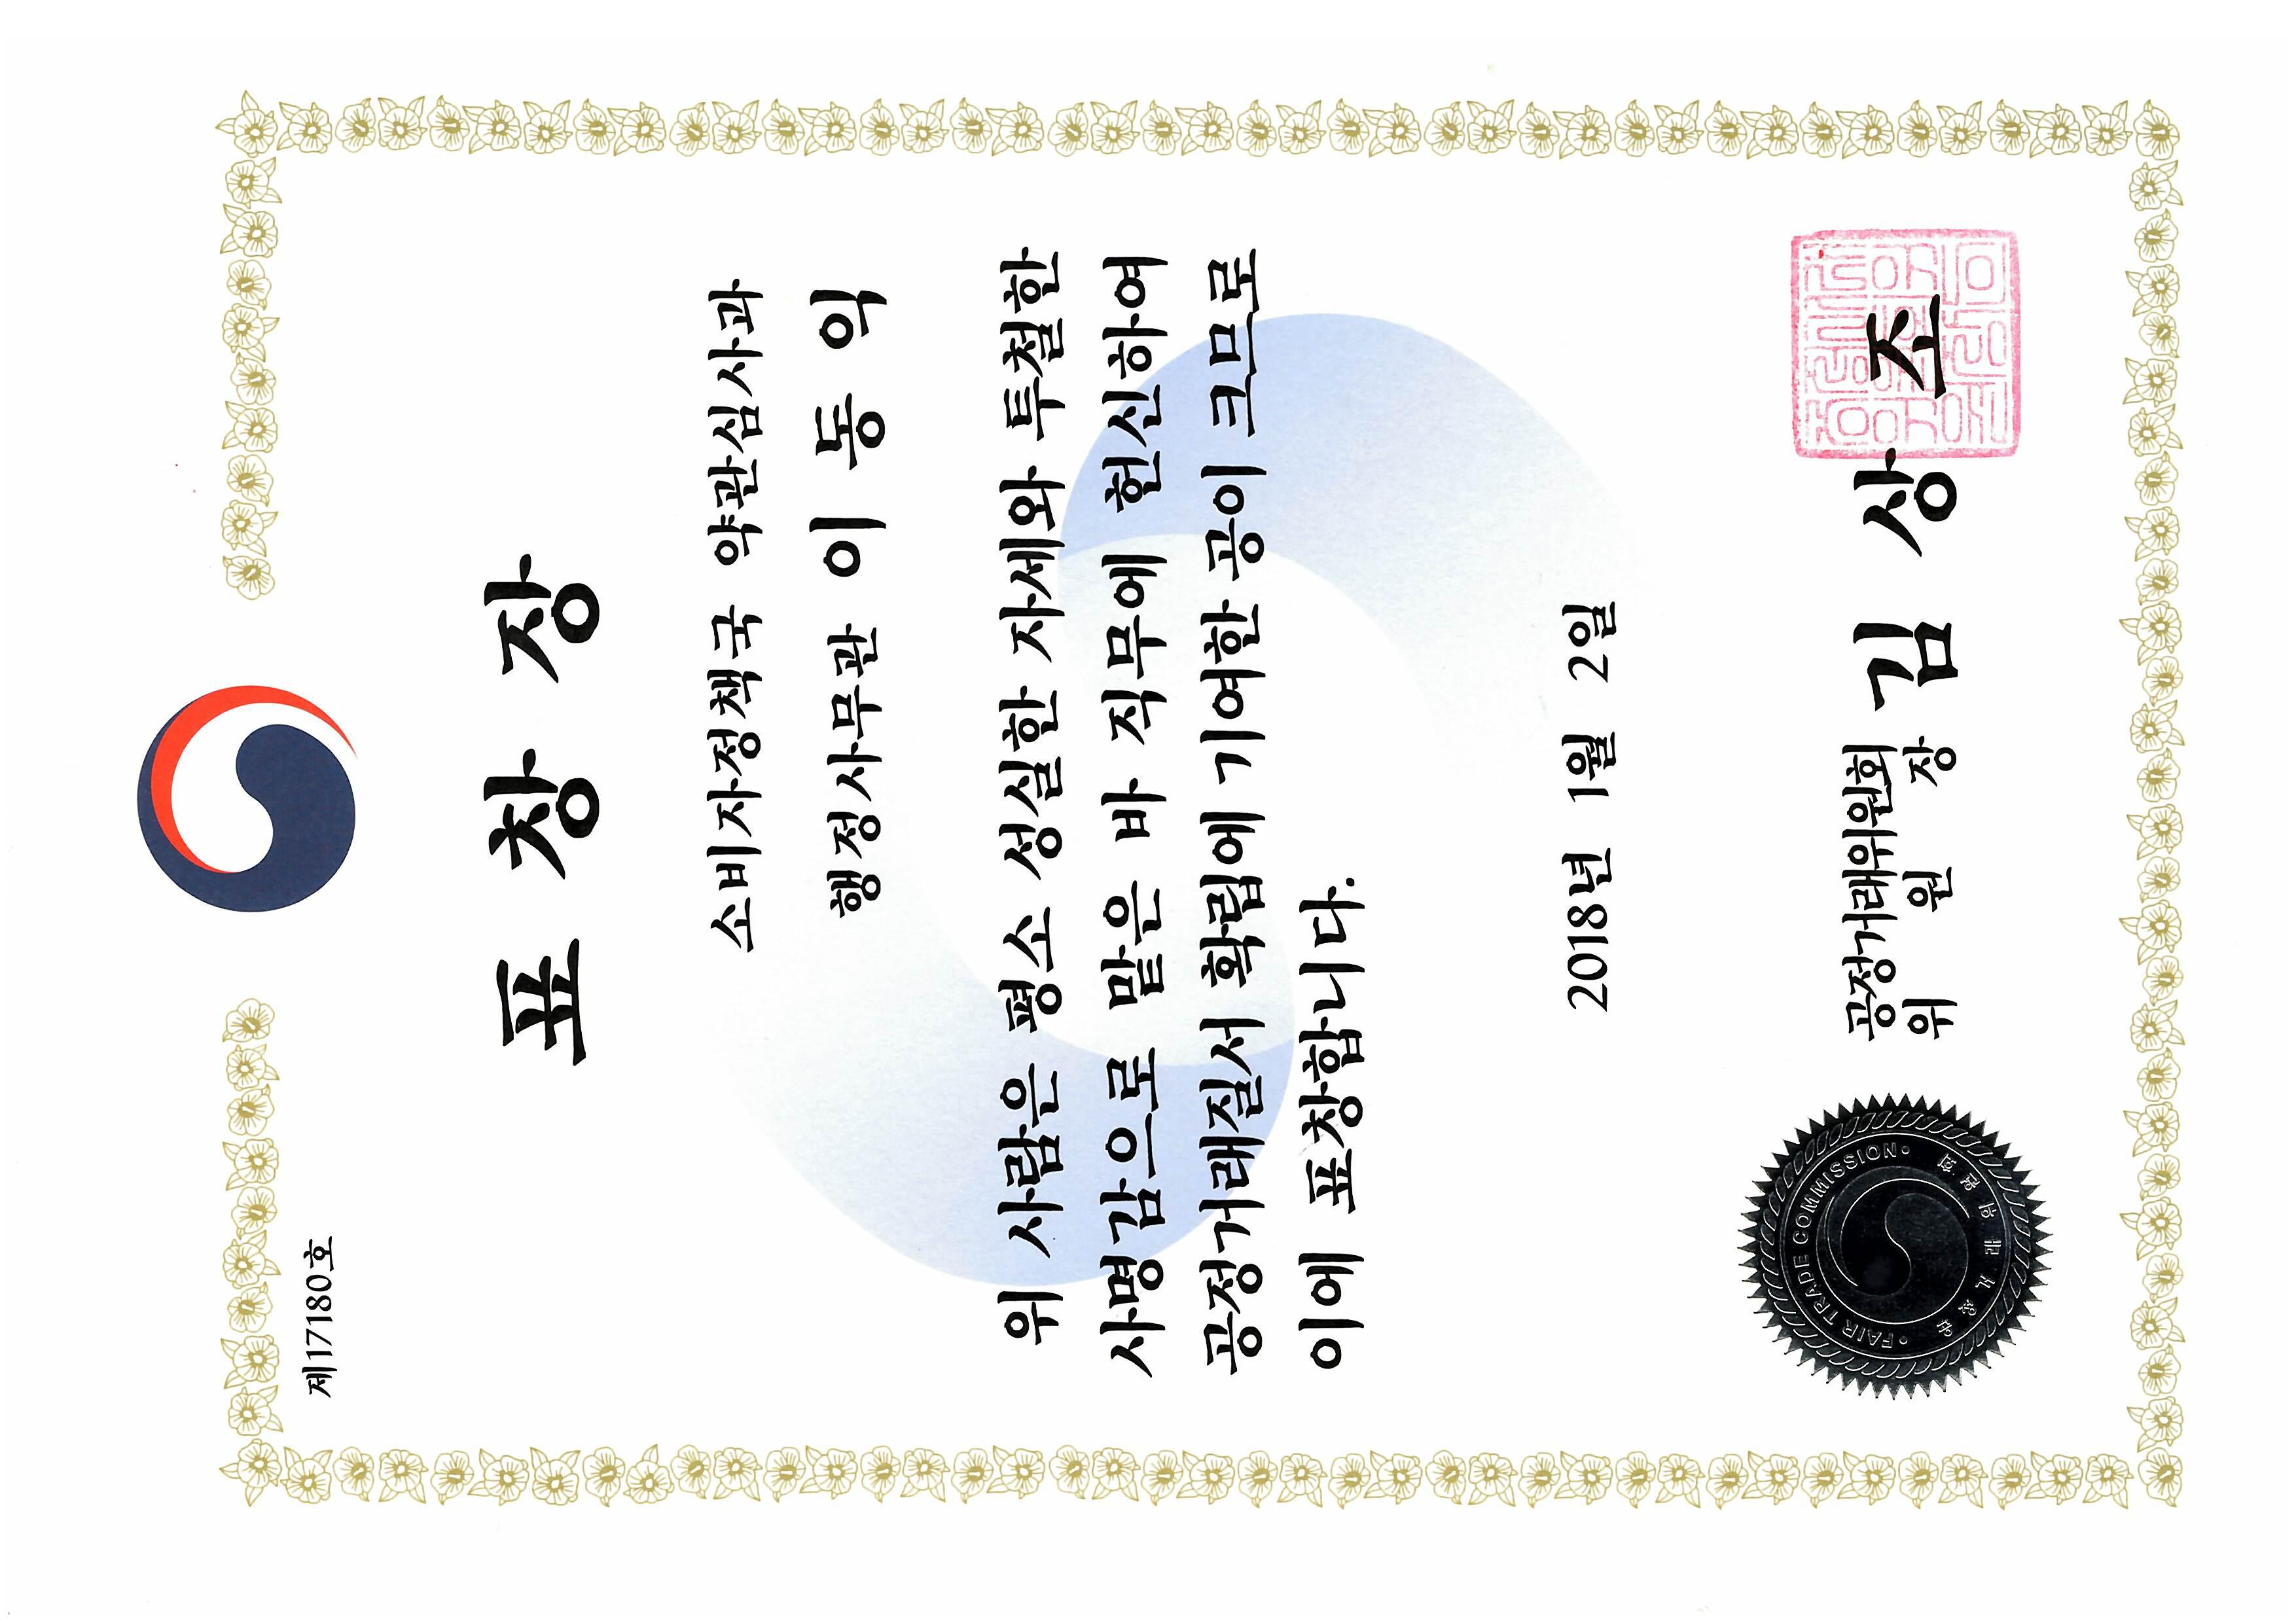 제17180호
표 창 장
소비자정책국 약관심사과
행정사무관 이 동 익
위 사람은 평소 성실한 자세와 투철한
사명감으로 맡은 바 직무에 헌신하여
공정거래질서 확립에 기여한 공이 크므로
이에 표창합니다.
2018년 1월 2일
공정거래위원회
위 원 장 김 상 조
• FAIR TRADE COMMISSION •
공 정 거 래 위 원 회